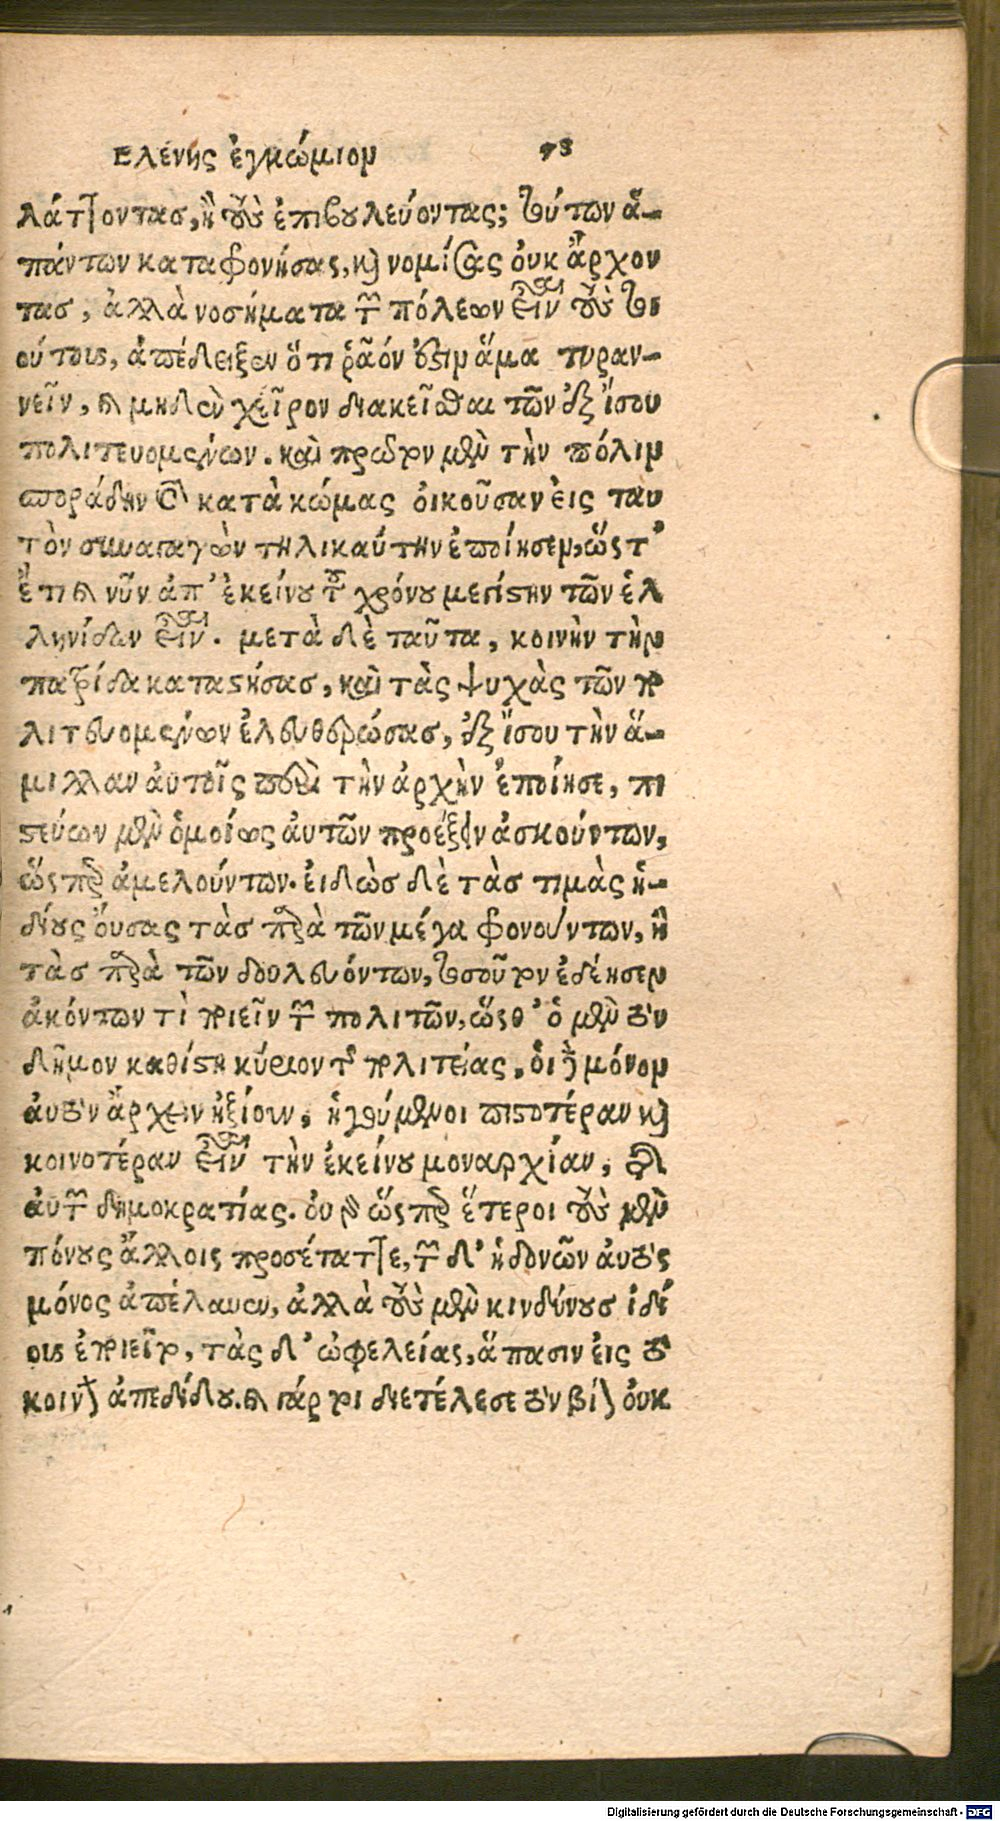 Ελένης ἐγκώμιον 73
λάττοντας, ἢ τοὺς ἐπιβουλεύοντας; τούτων ἁ-
πάντων καταφρονήσας, καὶ νομίσας οὐκ ἄρχον
τας, ἀλλὰ νοσήματα τῶν πόλεων εἶναι τοὺς τοι
ούτους, ἀπέδειξεν ὅτι ῥᾷόν ἐστιν ἅμα τυραν-
νεῖν, καὶ μηδὲν χεῖρον διακεῖσθαι τῶν ἐξ ἴσου
πολιτευομένων. καὶ πρῶτον μὲν τὴν πόλιν
σποράδην καὶ κατὰ κώμας οἰκοῦσαν εἰς ταυ
τὸν συναγαγὼν τηλικαύτην ἐποίησεν, ὥστ’
ἔτι καὶ νῦν ἀπ’ ἐκείνου τοῦ χρόνου μεγίστην τῶν ἑλ
ληνίδων εἶναι. μετὰ δὲ ταῦτα, κοινὴν τὴν
πατρίδα καταστήσας, καὶ τὰς ψυχὰς τῶν πο
λιτευομένων ἐλευθερώσας, ἐξ ἴσου τὴν ἅ-
μιλλαν αὐτοῖς περὶ τὴν ἀρχὴν ἐποίησε, πι
στεύων μὲν ὁμοίως αὐτῶν προέξειν ἀσκούντων,
ὥσπερ ἀμελούντων. εἰδὼς δὲ τὰς τιμὰς ἡ-
δίους οὔσας τὰς παρὰ τῶν μέγα φρονούντων, ἢ
τὰς παρὰ τῶν δουλευόντων, τοσοῦτον ἐδέησεν
ἀκόντων τὶ ποιεῖν τῶν πολιτῶν, ὥσθ’ ὁ μὲν τὸν
δῆμον καθίστη κύριον τῆς πολιτείας, οἱ δὲ μόνον
αὐτὸν ἄρχειν ἠξίουν, ἡγούμενοι πιστοτέραν καὶ
κοινοτέραν εἶναι τὴν ἐκείνου μοναρχίαν, τῆς
αὐτῶν δημοκρατίας. οὐ γὰρ ὥσπερ ἕτεροι τοὺς μὲν
πόνους ἄλλοις προσέταττε, τῶν δ’ ἡδονῶν αὐτὸς
μόνος ἀπέλαυεν, ἀλλὰ τοὺς μὲν κινδύνους ἰδί
ους ἐποιεῖτο, τὰς δ’ ὠφελείας, ἅπασιν εἰς τὸ
κοινὸν ἀπεδίδου. καὶ γάρ τοι διετέλεσε τὸν βίον οὐκ
Digitalisierung gefördert durch die Deutsche Forschungsgemeinschaft - DFG